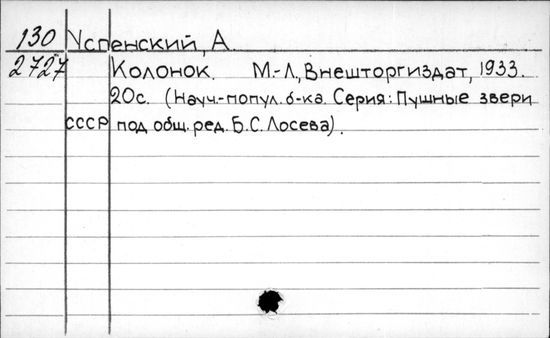 130 Успенский, А.
2727 Колонок. М.-Л., Внешторгиздат, 1933.
20с. (Науч.-попул. б-ка. Серия: Пушные звери
СССР под общ. ред. Б.С. Лосева).